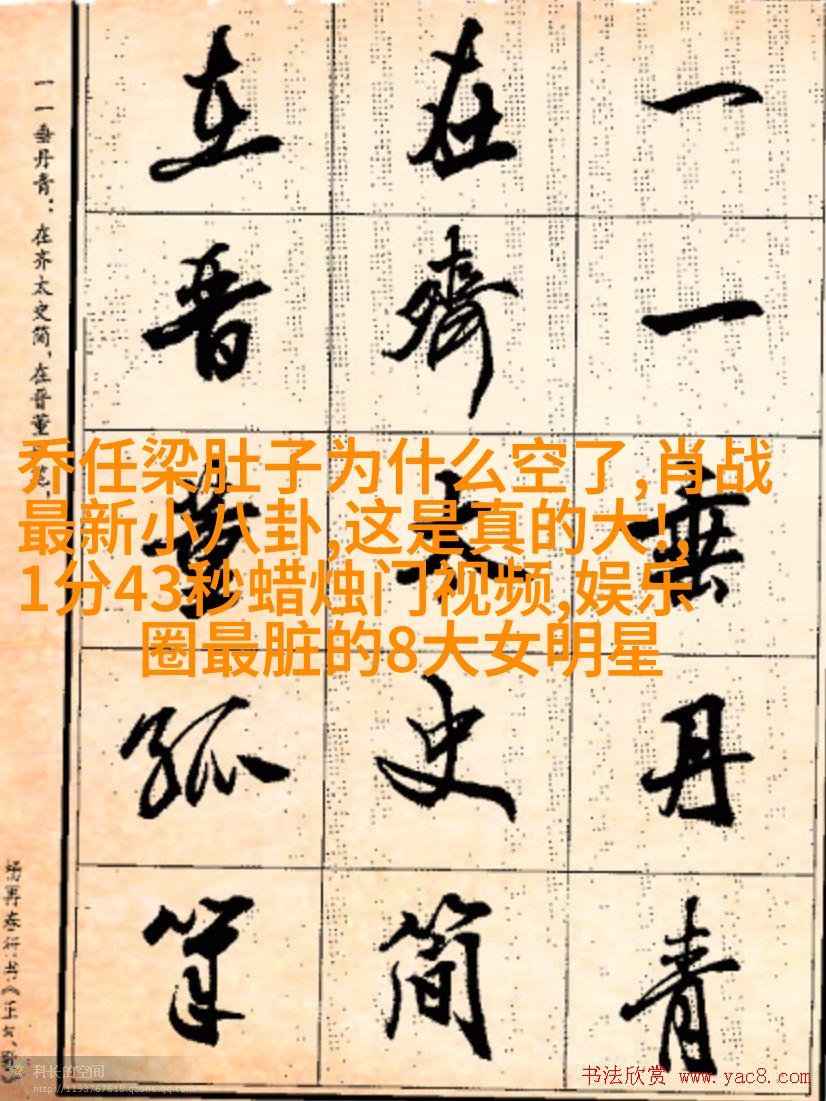 一一垂丹青
在齊太史简
在晋董狐笔
一一垂丹青：在齐太史简，在晋董
杨再春行书《正气歌》
乔任梁肚子为什么空了,肖战
最新小八卦,这是真的大!,
1分43秒蜡烛门视频,娱乐
圈最脏的8大女明星
科长的空间
http://1193767618.qzone.qq.com
书法欣赏 www.yac8.com